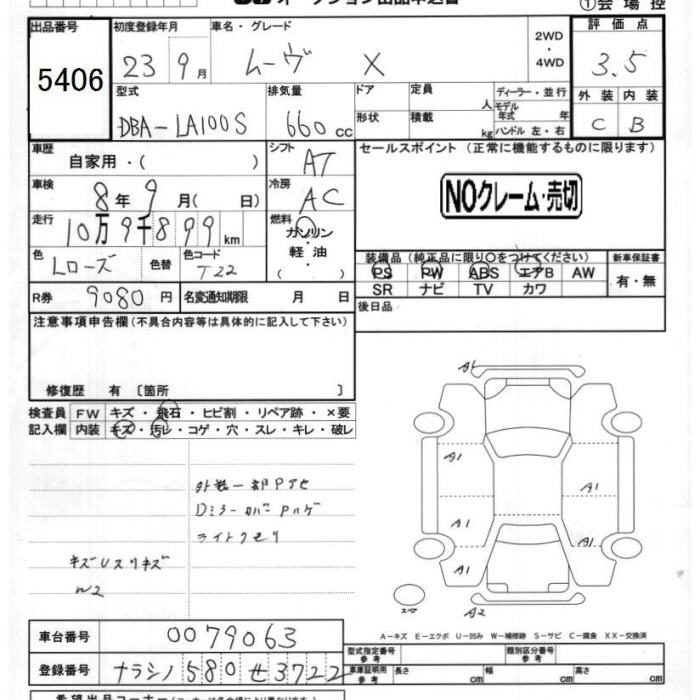 オークション出品申込書
①会場控
出品番号 初度登録年月 車名・グレード 2WD・4WD 評価点
5406 23 9月 ムーヴ X 3.5
型式 排気量 ドア 定員 人 ディーラー・並行 外装 内装
DBA-LA100S 660cc 形状 積載 kg モデル年式 年 ハンドル 左・右 C B
車歴 自家用・( ) シフト AT セールスポイント (正常に機能するものに限ります)
車検 8年9月( 日) 冷房 AC NOクレーム・売切
走行 10万9千899km 燃料 ガソリン
軽・油
( ・ )
色 Lローズ 色替 色コード T22
装備品 (純正品に限り〇をつけてください) 新車保証書
PS PW ABS エアB AW 有・無
SR ナビ TV カワ
R券 9080円 名変通知期限 月 日 後日品
注意事項申告欄 (不具合内容等は具体的に記入して下さい)
修復歴 有 〔箇所 〕
検査員 FW キズ・飛石・ヒビ割・リペア跡・×要
記入欄 内装 キズ・汚レ・コゲ・穴・スレ・キレ・破レ
外装一部Pアセ
Dミラーカバーハゲ
ライトクモリ
キズUスリキズ
W2
A1
A1 A1
A1 A1
A1
スペア A2
A-キズ E-エクボ U-凹み W-補修跡 S-サビ C-腐食 XX-交換済
車台番号 0079063
型式指定番号 参考 類別区分番号 参考
登録番号 ナラシノ 580 せ 3722
車庫証明用 参考 長さ cm 幅 cm 高さ cm
希望出品コーナー